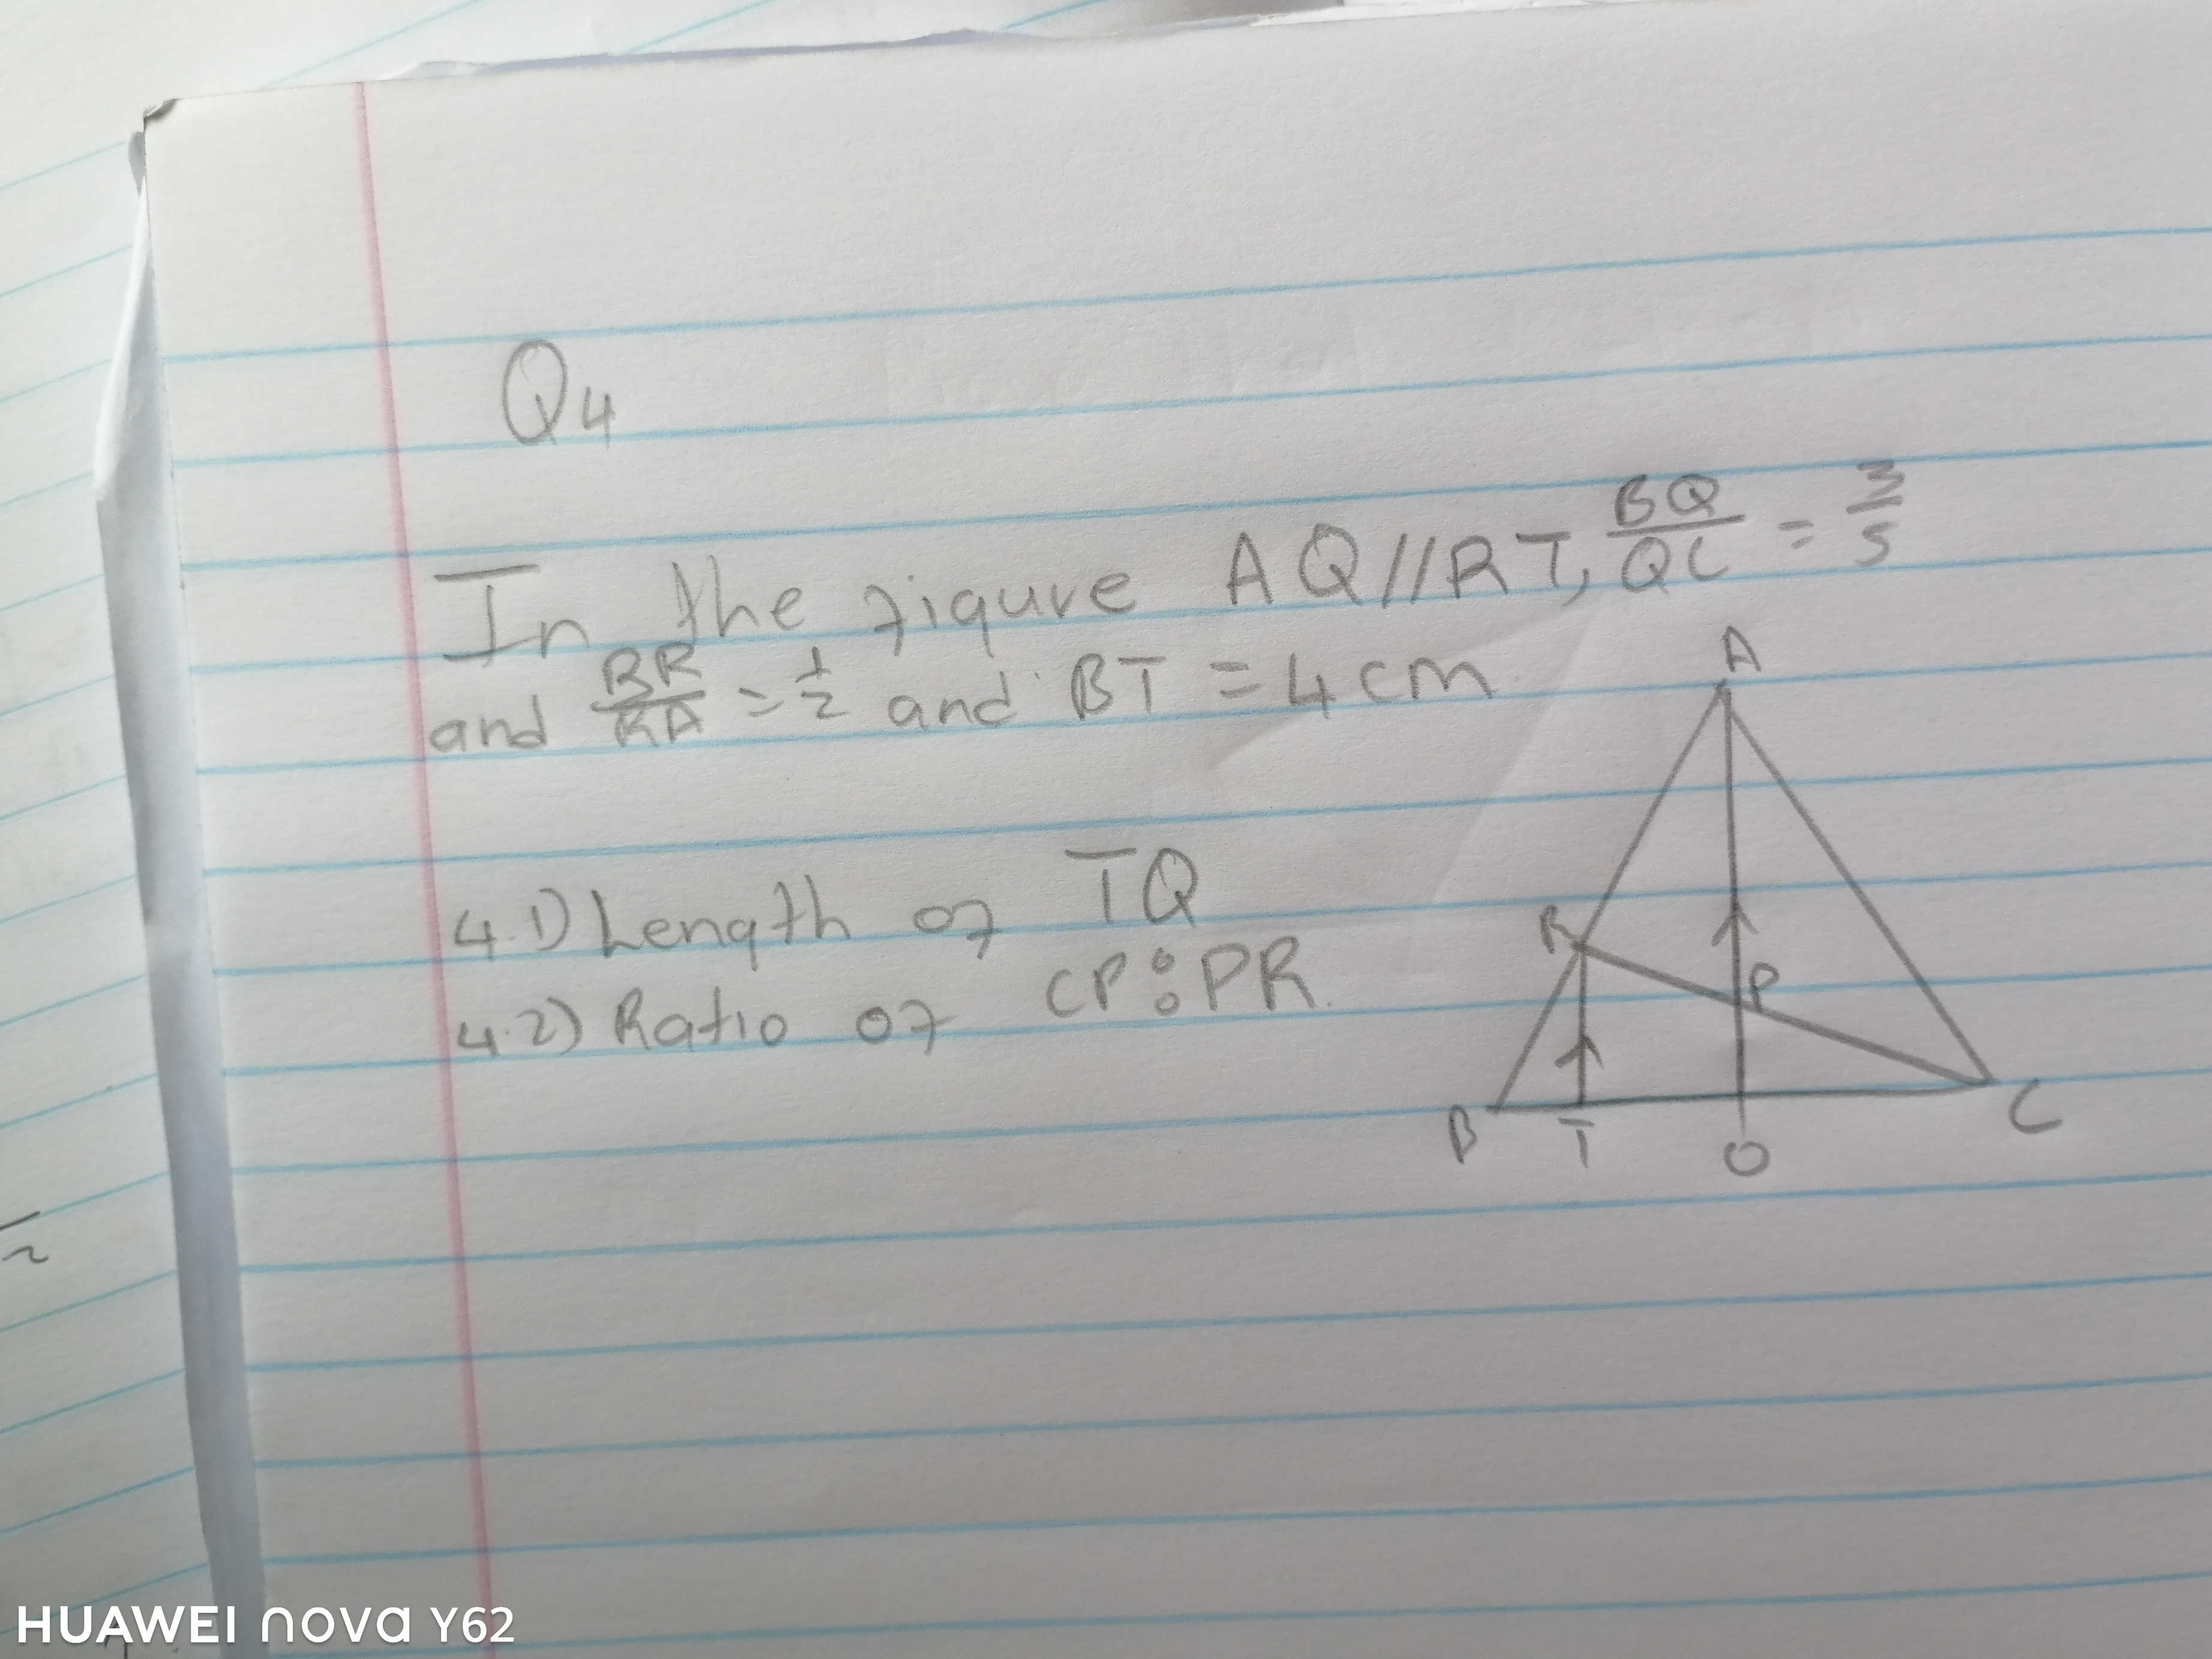 Q4
In the figure AQ//RT, BQ/QC = 3/5
and BR/RA = 1/2 and BT = 4cm
4.1) Length of TQ
4.2) Ratio of CP:PR.
A
R
P
B T Q C
HUAWEI nova Y62